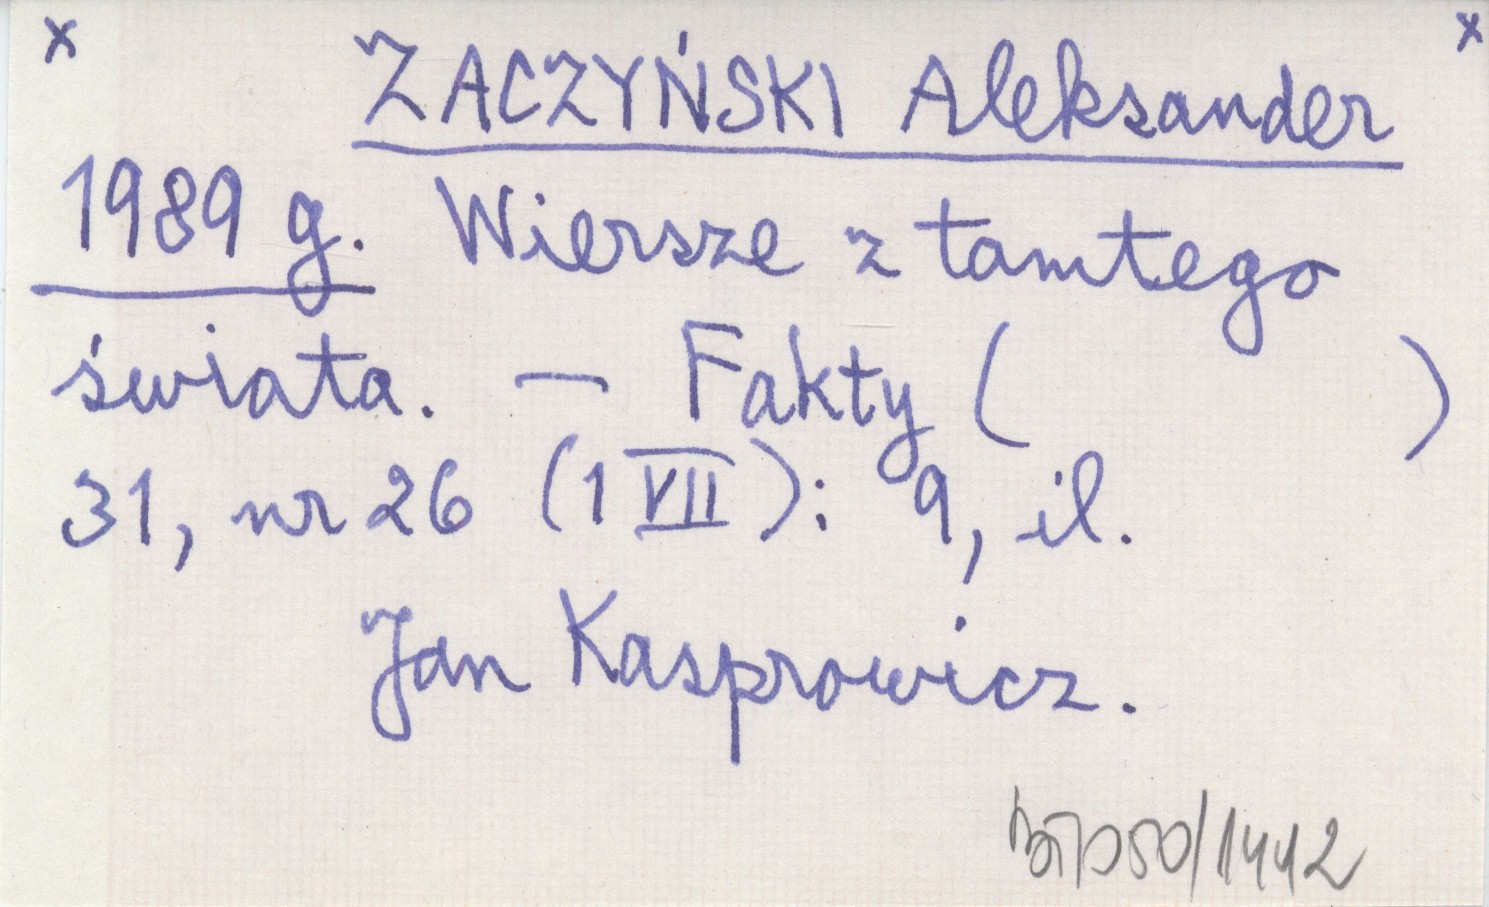 x ZACZYŃSKI Aleksander x
1989 g. Wiersze z tamtego
świata. — Fakty ( )
31, nr 26 (1 VII): 9, il.
Jan Kasprowicz.
/1442